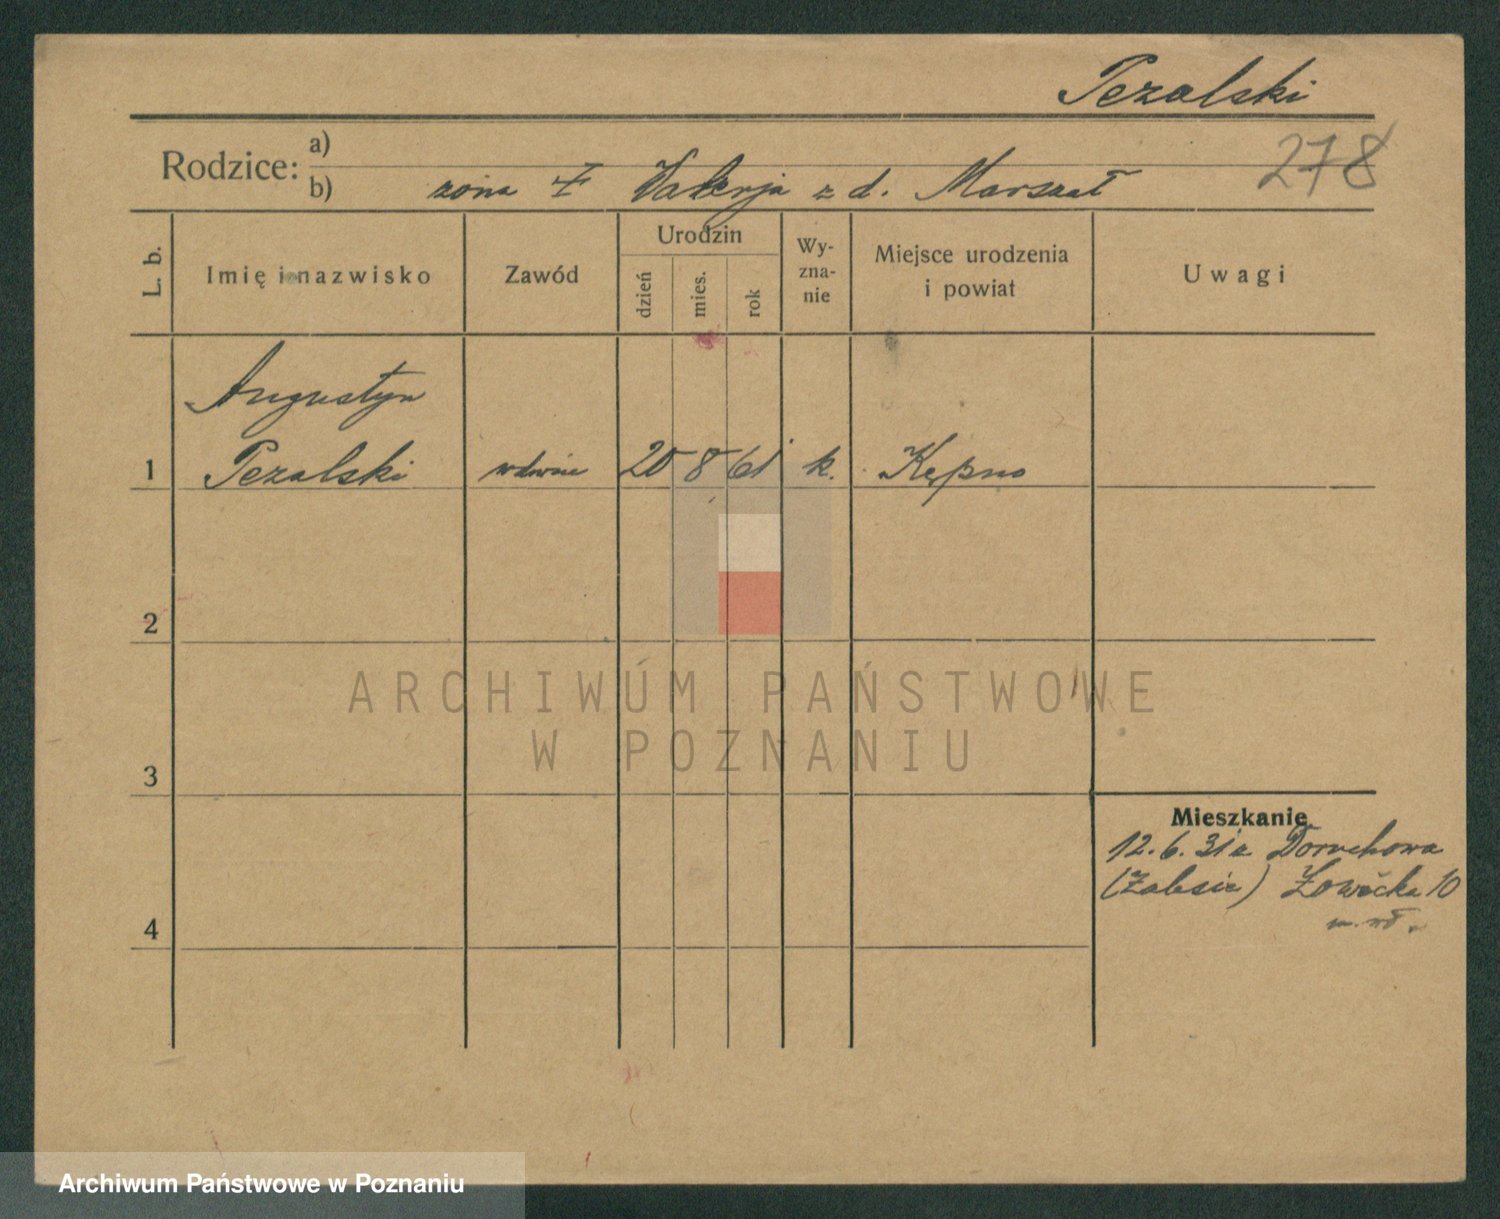 Pezalski
278
Rodzice: a)
b) żona ✝ Walerja z d. Marszał
L. b.
Imię i nazwisko
Zawód
Urodzin
dzień
mies.
rok
Wy-
zna-
nie
Miejsce urodzenia
i powiat
Uwagi
Augustyn
1 Pezalski 20 8 61 k. Kępno
2
3
4
Mieszkanie
12.6.31 z Doruchowa
(Zalesie) 10
ARCHIWUM PAŃSTWOWE
W POZNANIU
Archiwum Państwowe w Poznaniu